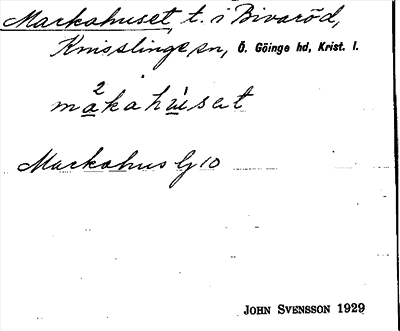 Markahuset, t. i Bivaröd,
Knisslinge sn, Ö. Göinge hd, Krist. l.
2
makahúset
Markahus Gj 10
JOHN SVENSSON 1929